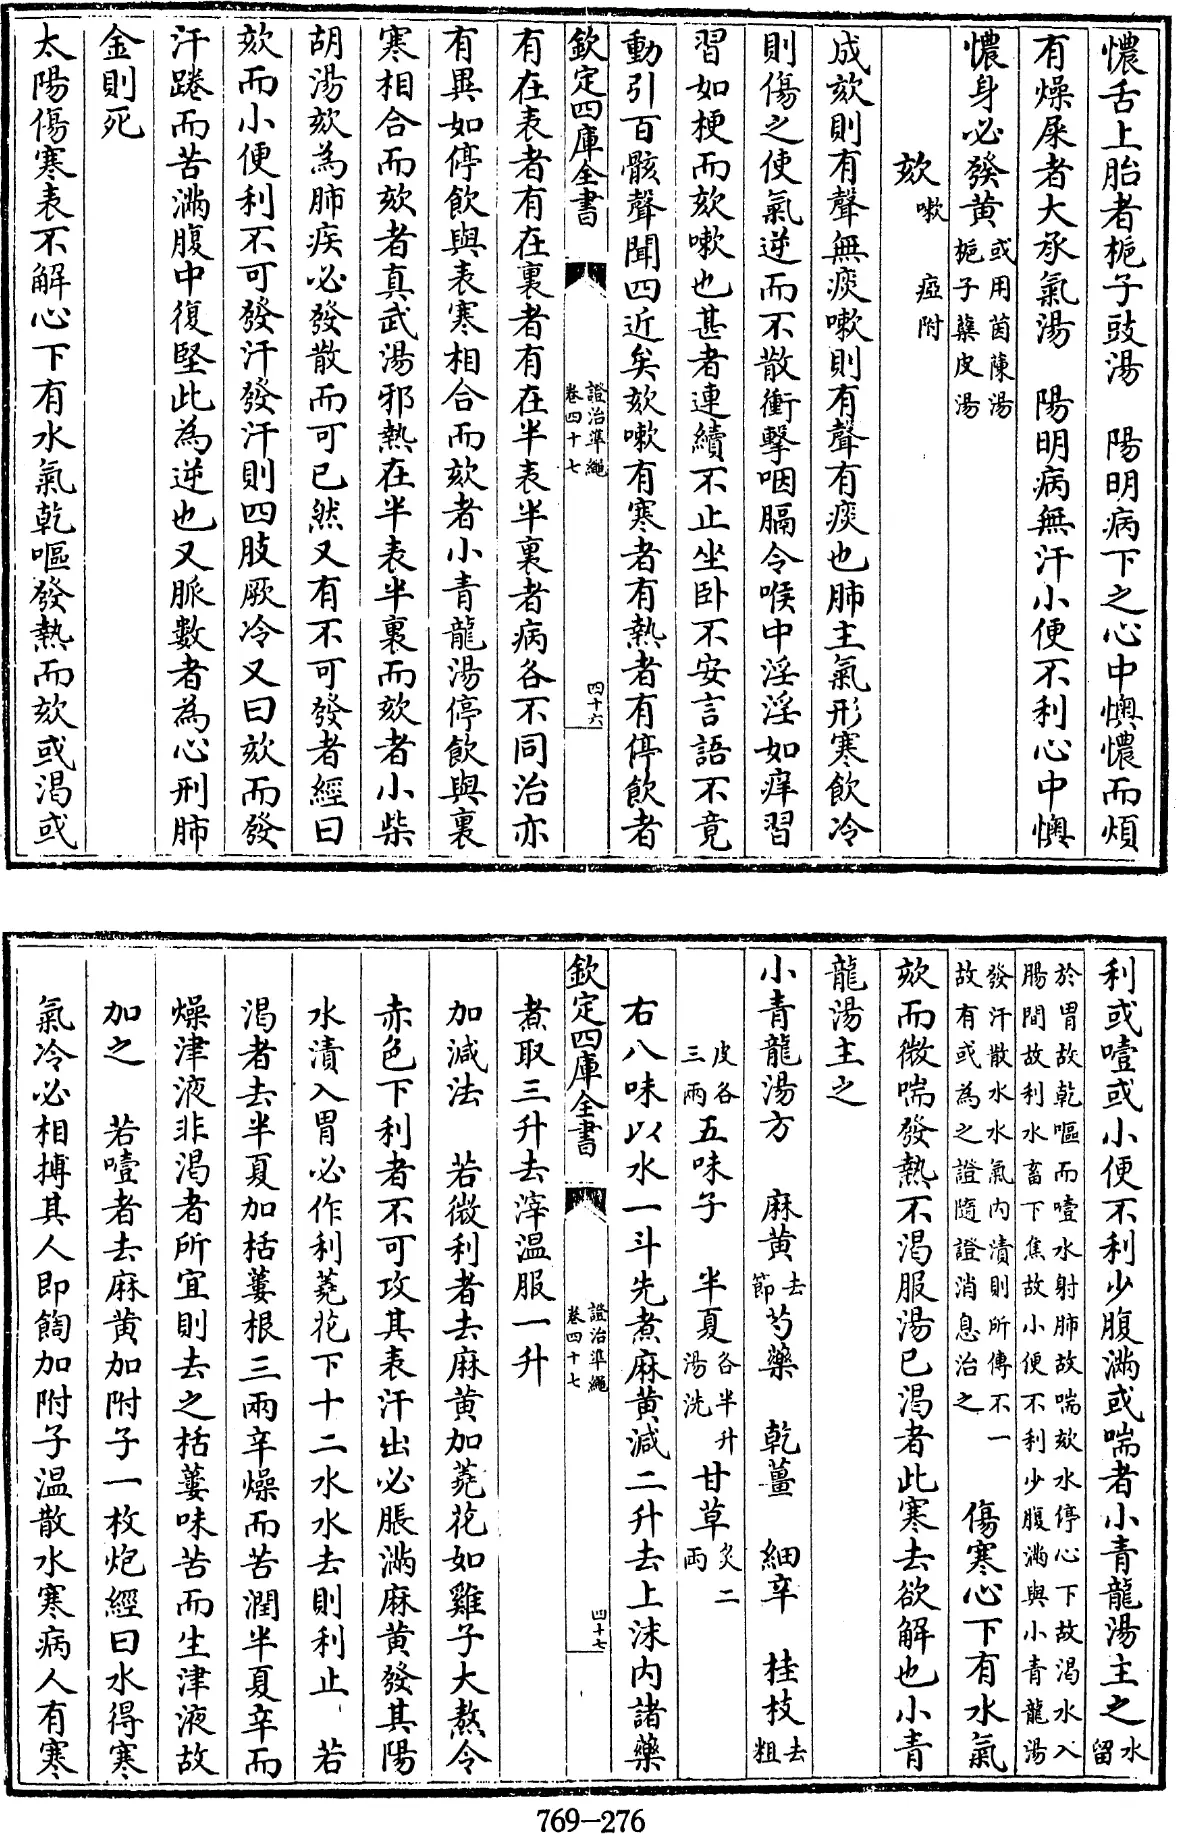 憹舌上胎者梔子豉湯　陽明病下之心中懊憹而煩
有燥屎者大承氣湯　陽明病無汗小便不利心中懊
憹身必發黃或用茵陳湯梔子蘗皮湯
欬嗽　瘂附
成欬則有聲無痰嗽則有聲有痰也肺主氣形寒飲冷
則傷之使氣逆而不散衝擊咽膈令喉中淫淫如痒習
習如梗而欬嗽也甚者連續不止坐卧不安言語不竟
動引百骸聲聞四近矣欬嗽有寒者有熱者有停飲者
欽定四庫全書　證治準繩卷四十七　四十六
有在表者有在裏者有在半表半裏者病各不同治亦
有異如停飲與表寒相合而欬者小青龍湯停飲與裏
寒相合而欬者真武湯邪熱在半表半裏而欬者小柴
胡湯欬為肺疾必發散而可已然又有不可發者經曰
欬而小便利不可發汗發汗則四肢厥冷又曰欬而發
汗踡而苦滿腹中復堅此為逆也又脈數者為心刑肺
金則死
太陽傷寒表不解心下有水氣乾嘔發熱而欬或渴或
利或噎或小便不利少腹滿或喘者小青龍湯主之水留
於胃故乾嘔而噎水射肺故喘欬水停心下故渴水入
腸間故利水畜下焦故小便不利少腹滿與小青龍湯
發汗散水水氣內漬則所傳不一故有或為之證隨證消息治之　傷寒心下有水氣
欬而微喘發熱不渴服湯已渴者此寒去欲解也小青
龍湯主之
小青龍湯方　麻黃去節　芍藥　乾薑　細辛　桂枝去粗
皮各三兩　五味子　半夏各半升湯洗　甘草炙二兩
右八味以水一斗先煮麻黃減二升去上沫內諸藥
欽定四庫全書　證治準繩卷四十七　四十七
煮取三升去滓溫服一升
加減法　若微利者去麻黃加蕘花如雞子大熬令
赤色下利者不可攻其表汗出必脹滿麻黃發其陽
水漬入胃必作利蕘花下十二水水去則利止　若
渴者去半夏加栝蔞根三兩辛燥而苦潤半夏辛而
燥津液非渴者所宜則去之栝蔞味苦而生津液故
加之　若噎者去麻黃加附子一枚炮經曰水得寒
氣冷必相搏其人即䭇加附子溫散水寒病人有寒
769-276